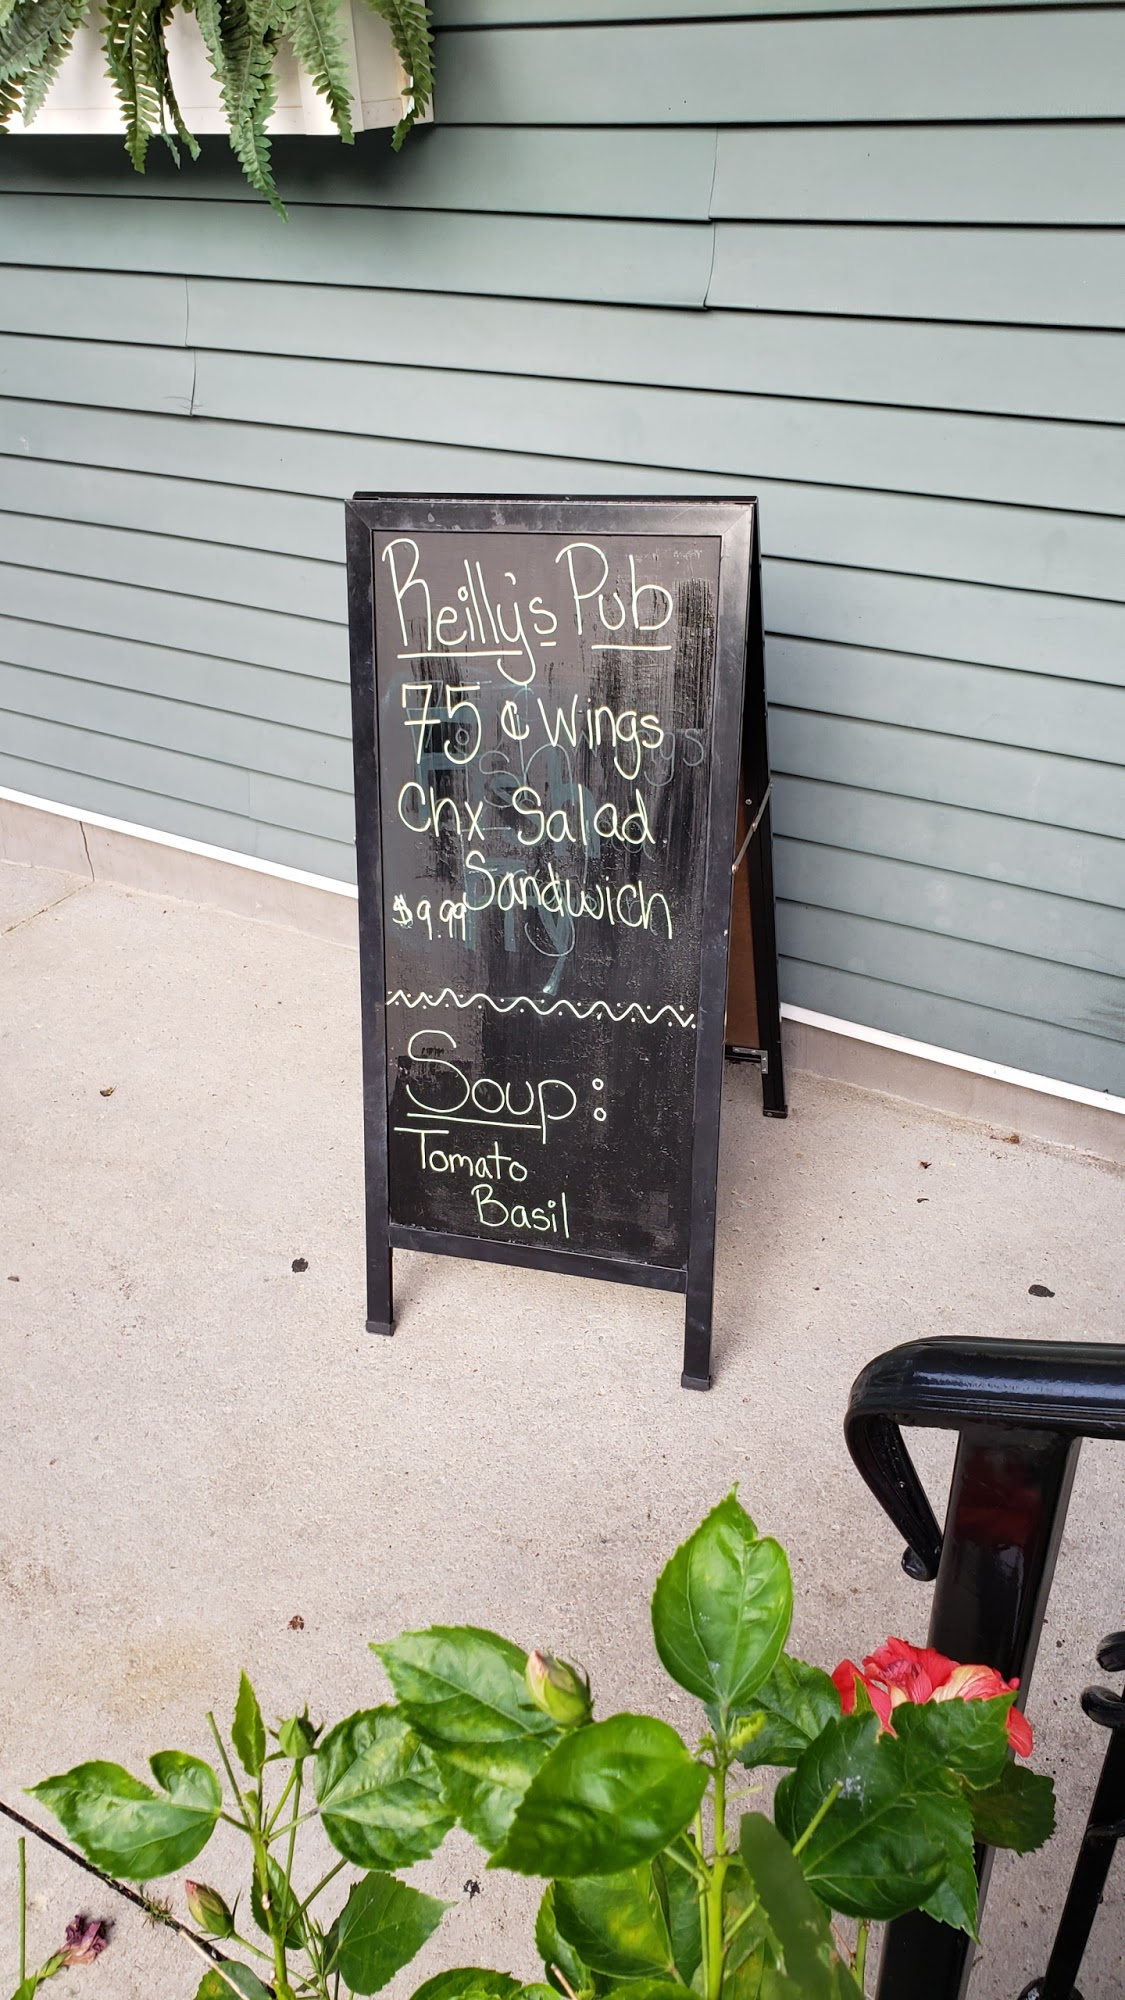 Reilly's Pub
75 ¢ Wings
Chx Salad
Sandwich
$9.99
Soup:
Tomato
Basil